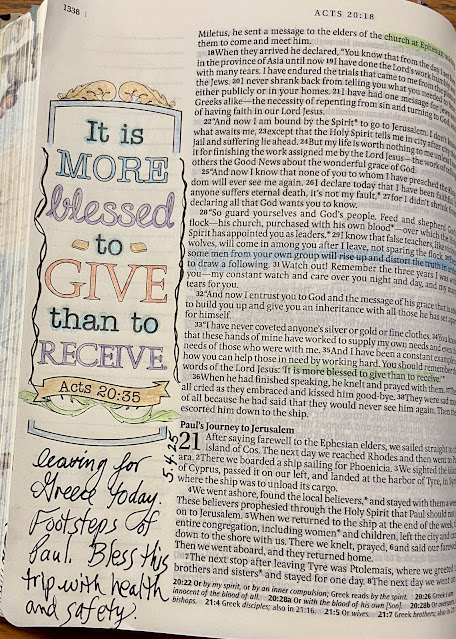 1338
ACTS 20:18
It is
MORE
blessed
to
GIVE
than to
RECEIVE
Acts 20:35
leaving for
Greece today.
Footsteps of
Paul Bless this
trip with health
and safety.
Miletus, he sent a message to the elders of the church at Ephesus
them to come and meet him.
18When they arrived he declared, "You know that from the day I
in the province of Asia until now 19I have done the Lord's work
with many tears. I have endured the trials that came to me from
the Jews. 20I never shrank back from telling you what you needed
either publicly or in your homes. 21I have had one message for
Greeks alike—the necessity of repenting from sin and turning to God
of having faith in our Lord Jesus.
22"And now I am bound by the Spirit* to go to Jerusalem. I don't
what awaits me, 23except that the Holy Spirit tells me in city after
jail and suffering lie ahead. 24But my life is worth nothing to me
it for finishing the work assigned me by the Lord Jesus—the work of
others the Good News about the wonderful grace of God.
25"And now I know that none of you to whom I have preached the
dom will ever see me again. 26I declare today that I have been
anyone suffers eternal death, it's not my fault,* 27for I didn't
declaring all that God wants you to know.
28"So guard yourselves and God's people. Feed and shepherd God's
flock—his church, purchased with his own blood*—over which the
Spirit has appointed you as leaders.* 29I know that false teachers, like
wolves, will come in among you after I leave, not sparing the flock.
some men from your own group will rise up and distort the truth in
to draw a following. 31Watch out! Remember the three years I was
you—my constant watch and care over you night and day, and my
tears for you.
32"And now I entrust you to God and the message of his grace that is
to build you up and give you an inheritance with all those he has set
for himself.
33"I have never coveted anyone's silver or gold or fine clothes. 34You
that these hands of mine have worked to supply my own needs and
needs of those who were with me. 35And I have been a constant
how you can help those in need by working hard. You should remember
words of the Lord Jesus: 'It is more blessed to give than to receive.'"
36When he had finished speaking, he knelt and prayed with them.
all cried as they embraced and kissed him good-bye. 38They were sad
of all because he had said that they would never see him again. Then
escorted him down to the ship.
Paul's Journey to Jerusalem
21 After saying farewell to the Ephesian elders, we sailed straight to
island of Cos. The next day we reached Rhodes and then went to
ara. 2There we boarded a ship sailing for Phoenicia. 3We sighted the
of Cyprus, passed it on our left, and landed at the harbor of Tyre, in
where the ship was to unload its cargo.
4We went ashore, found the local believers,* and stayed with them
These believers prophesied through the Holy Spirit that Paul should not
on to Jerusalem. 5When we returned to the ship at the end of the week,
entire congregation, including women* and children, left the city and
down to the shore with us. There we knelt, prayed, 6and said our
Then we went aboard, and they returned home.
7The next stop after leaving Tyre was Ptolemais, where we greeted
brothers and sisters* and stayed for one day. 8The next day we went on
20:22 Or by my spirit, or by an inner compulsion; Greek reads by the spirit. 20:26 Greek I am
innocent of the blood of all. 20:28a Or with the blood of his own [Son]. 20:28b Or
bishops. 21:4 Greek disciples; also in 21:16. 21:5 Or wives. 21:7 Greek brothers; also in